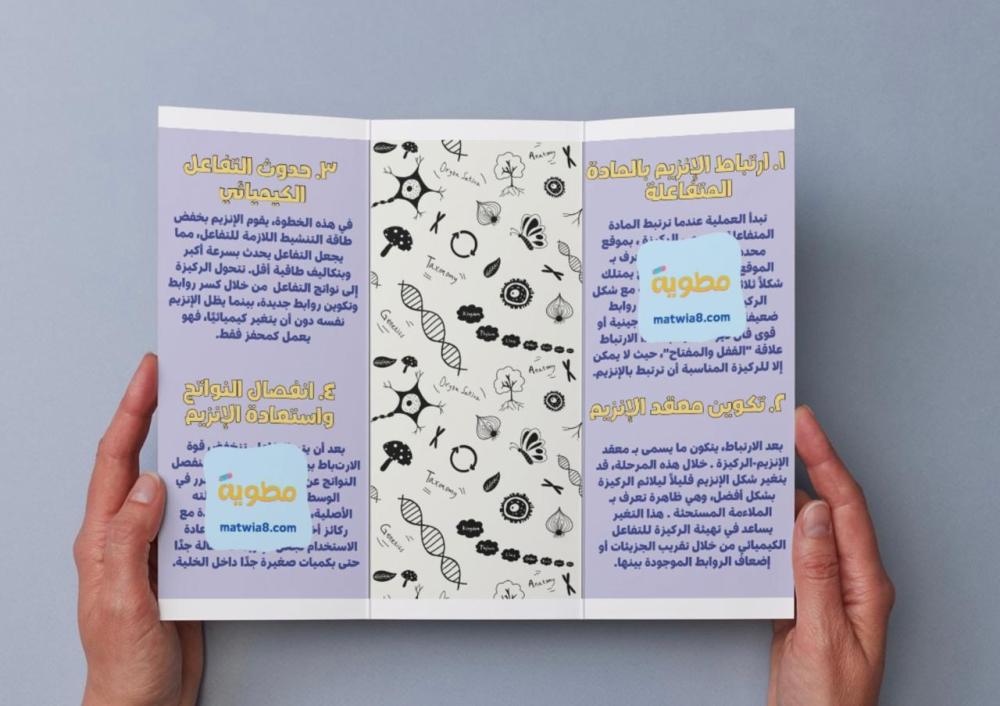 ١. ارتباط الإنزيم بالمادة
المتفاعلة
تبدأ العملية عندما ترتبط المادة
الموقع
شكلاً
مع شكل
روابط
أو
قوى
الارتباط
علاقة "القفل والمفتاح"، حيث لا يمكن
إلا للركيزة المناسبة أن ترتبط بالإنزيم.
مطوية
matwia8.com
٢. تكوين معقد الإنزيم
بعد الارتباط، يتكون ما يسمى بـ معقد
الإنزيم-الركيزة . خلال هذه المرحلة، قد
يتغير شكل الإنزيم قليلاً ليلائم الركيزة
بشكل أفضل، وهي ظاهرة تعرف بـ
الملاءمة المستحثة . هذا التغير
يساعد في تهيئة الركيزة للتفاعل
الكيميائي من خلال تقريب الجزيئات أو
إضعاف الروابط الموجودة بينها.
Anatomy
Taxonomy
Genetics
Kingdom
Phylum
Class
Anatomy
Taxonomy
Genetics
Kingdom
Phylum
Class
Anatomy
٣. حدوث التفاعل
الكيميائي
في هذه الخطوة، يقوم الإنزيم بخفض
طاقة التنشيط اللازمة للتفاعل، مما
يجعل التفاعل يحدث بسرعة أكبر
وبتكاليف طاقية أقل. تتحول الركيزة
إلى نواتج التفاعل من خلال كسر روابط
وتكوين روابط جديدة، بينما يظل الإنزيم
نفسه دون أن يتغير كيميائيًا، فهو
يعمل كمحفز فقط.
٤. انفصال النواتج
واستعادة الإنزيم
بعد أن تنخفض قوة
الارتباط
النواتج في
الوسط
الأصلية، مع
ركائز
الاستخدام جدًا
حتى بكميات صغيرة جدًا داخل الخلية.
مطوية
matwia8.com